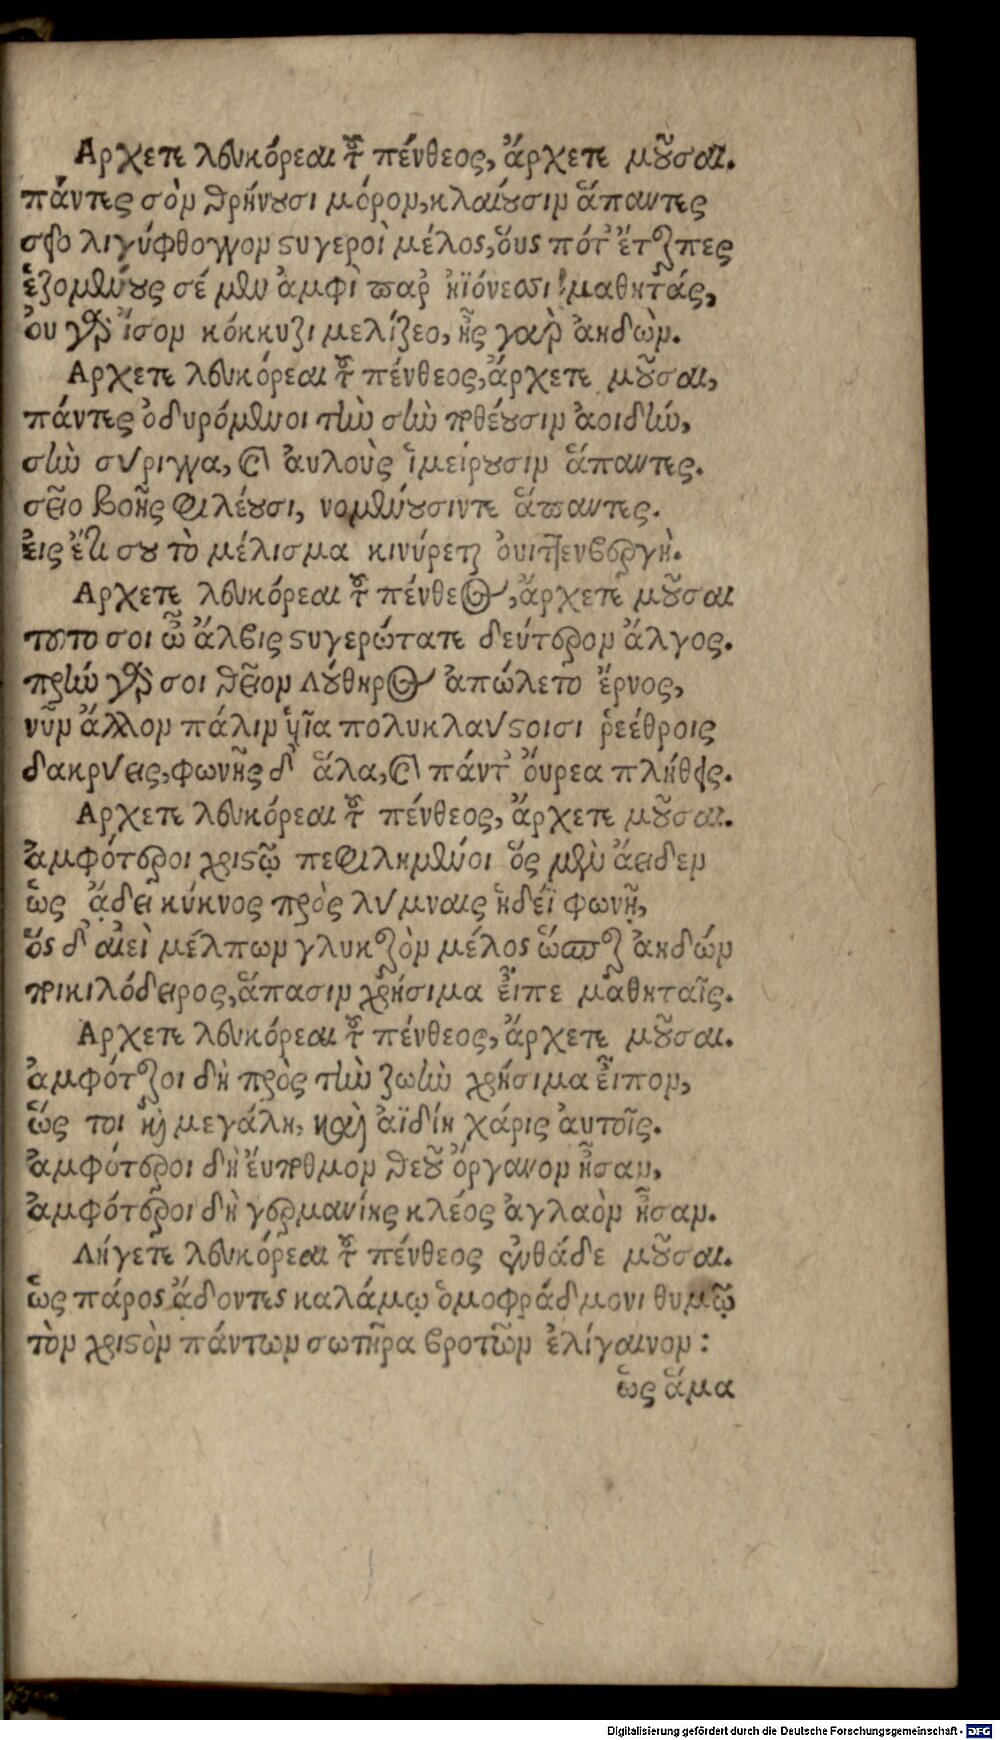 Αρχετε λευκόρεαι τοῦ πένθεος, ἄρχετε μοῦσαι.
πάντες σὸν θρήνουσι μόρον, κλαίουσιν ἅπαντες
σεῖο λιγύφθογγον στυγεροὶ μέλος, ὅυς πότ' ἔτερπες
ἑζομένους σέ μὲν ἀμφὶ παρ' ἠϊόνεσσι μαθητάς,
ὀυ γὰρ ἴσον κόκκυζι μελίζεο, ἧς γαρ ἀηδὼν.
Αρχετε λευκόρεαι τοῦ πένθεος, ἄρχετε μοῦσαι,
πάντες ὀδυρόμενοι τὴν σὴν ποθέουσιν ἀοιδήν,
σὴν σύριγγα, καὶ ἀυλοὺς ἱμείρουσιν ἅπαντες.
σεῖο βοῆς φιλέουσι, νομεύουσιντε ἅπαντες.
ἐις ἔτι σου τὸ μέλισμα κινύρεται
Αρχετε λευκόρεαι τοῦ πένθεος, ἄρχετε μοῦσαι
τουτο σοι ὦ ἄλβις στυγερώτατε δεύτερον ἄλγος.
πρὶν γάρ σοι θεῖον Λούθηρος ἀπώλετο ἔρνος,
νῦν ἄλλον πάλιν ὑῖα πολυκλαύστοισι ῥεέθροις
δακρύεις, φωνῆς δ' ἅλα, καὶ πάντ' ὄυρεα πλήθεις.
Αρχετε λευκόρεαι τοῦ πένθεος, ἄρχετε μοῦσαι.
ἀμφότεροι χριστῷ πεφιλημένοι ὅς μὲν ἄειδεν
ὡς ᾄδει κύκνος πρὸς λύμναις ἡδέϊ φωνῇ,
ὅς δ' αἰεὶ μέλπων γλυκερὸν μέλος ὥσπερ ἀηδών
ποικιλόδειρος, ἅπασιν χρήσιμα ἔιπε μαθηταῖς.
Αρχετε λευκόρεαι τοῦ πένθεος, ἄρχετε μοῦσαι.
ἀμφότεροι δὴ πρὸς τὴν ζωὴν χρήσιμα ἔιπον,
ὥς τοι ἦ μεγάλη, καὶ ἀϊδίη χάρις ἀυτοῖς.
ἀμφότεροι δὴ ἔυποθμον θεοῦ ὄργανον ἦσαν,
ἀμφότεροι δὴ γερμανίης κλέος ἀγλαὸν ἦσαν.
Λήγετε λευκόρεαι τοῦ πένθεος ἐνθάδε μοῦσαι.
ὡς πάρος ᾄδοντες καλάμῳ ὁμοφράδμονι θυμῷ
τὸν χριστὸν πάντων σωτῆρα βροτῶν ἐλίγαινον :
ὡς ἅμα
Digitalisierung gefördert durch die Deutsche Forschungsgemeinschaft - DFG